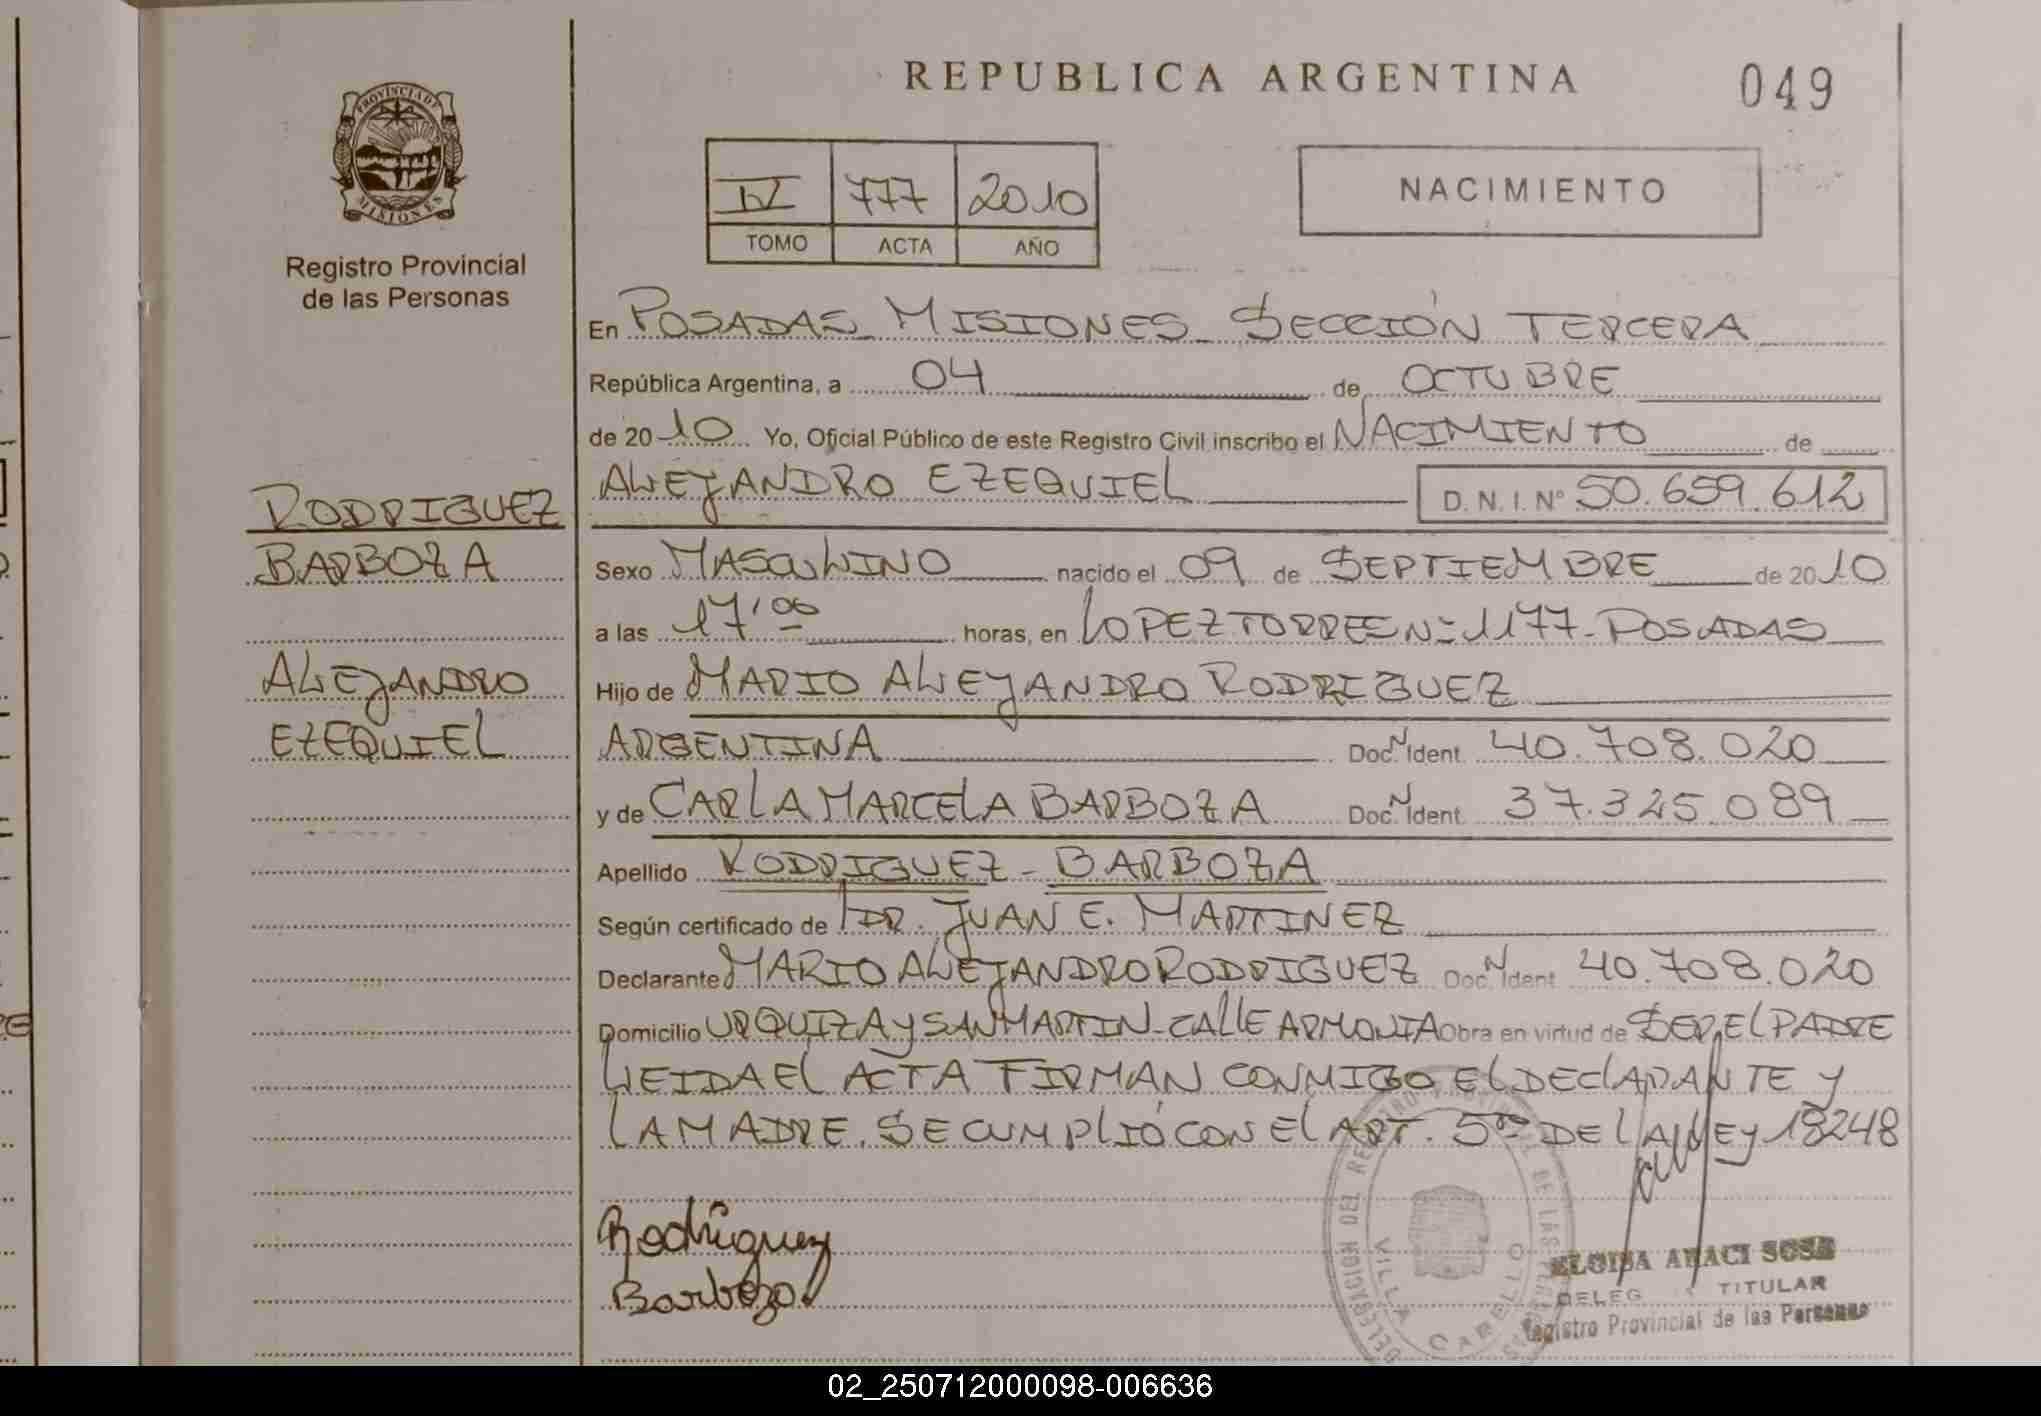 REPUBLICA ARGENTINA
049
PROVINCIA DE MISIONES
Registro Provincial
de las Personas
IV 777 2010
TOMO ACTA AÑO
NACIMIENTO
En POSADAS MISIONES SECCIÓN TERCERA
República Argentina, a 04 de OCTUBRE
de 2010 Yo, Oficial Público de este Registro Civil inscribo el NACIMIENTO de
ALEJANDRO EZEQUIEL D. N. I. Nº 50.659.612
RODRIGUEZ
BARBOZA
ALEJANDRO
EZEQUIEL
Sexo MASCULINO nacido el 09 de SEPTIEMBRE de 2010
a las 17'00 horas, en LOPEZ TORRES Nº 1177- POSADAS
Hijo de MARIO ALEJANDRO RODRIGUEZ
ARGENTINA Doc. N Ident. 40.708.020
y de CARLA MARCELA BARBOZA Doc. N Ident. 37.325.089
Apellido RODRIGUEZ - BARBOZA
Según certificado de DR. JUAN E. MARTINEZ
Declarante MARIO ALEJANDRO RODRIGUEZ Doc. N Ident 40.708.020
Domicilio URQUIZA Y SAN MARTIN - CALLE ARMONIA Obra en virtud de SER EL PADRE
LEIDA EL ACTA FIRMAN CONMIGO EL DECLARANTE Y
LA MADRE. SE CUMPLIÓ CON EL ART. 5to DE LA LEY 18248
Rodriguez
Barboza
DELEGACION DEL REGISTRO DE LAS
VILLA CABELLO
ELOISA ARACI SOSA
DELEG TITULAR
Registro Provincial de las Personas
02_250712000098-006636